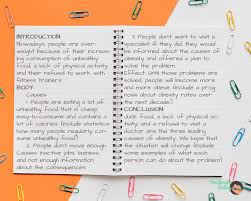 INTRODUCTION
Nowadays, people are over-
weight because of their increas-
ing consumption of unhealthy
food, a lack of physical activity,
and their refusal to work with
fitness trainers.
BODY:
Causes:
1. People are eating a lot of
unhealthy food that is cheap,
easy-to-consume and contains a
lot of calories. (Include statistics
how many people regularly consume
unhealthy food?)
2. People don't move enough.
Causes: inactive jobs, laziness,
and not enough information
about the consequences.
3. People don't want to visit a
specialist. If they did, they would
be informed about the causes of
obesity and offered a plan to
solve the problem.
Effect: Until those problems are
solved, people will become more
and more obese. (Include a prog
nosis about obesity rates over
the next decade.)
CONCLUSION
Junk food, a lack of physical ac-
tivity, and a refusal to visit a
doctor are the three leading
causes of obesity. We hope that
the situation will change. (Give
some examples of what each
person can do about the problem.)